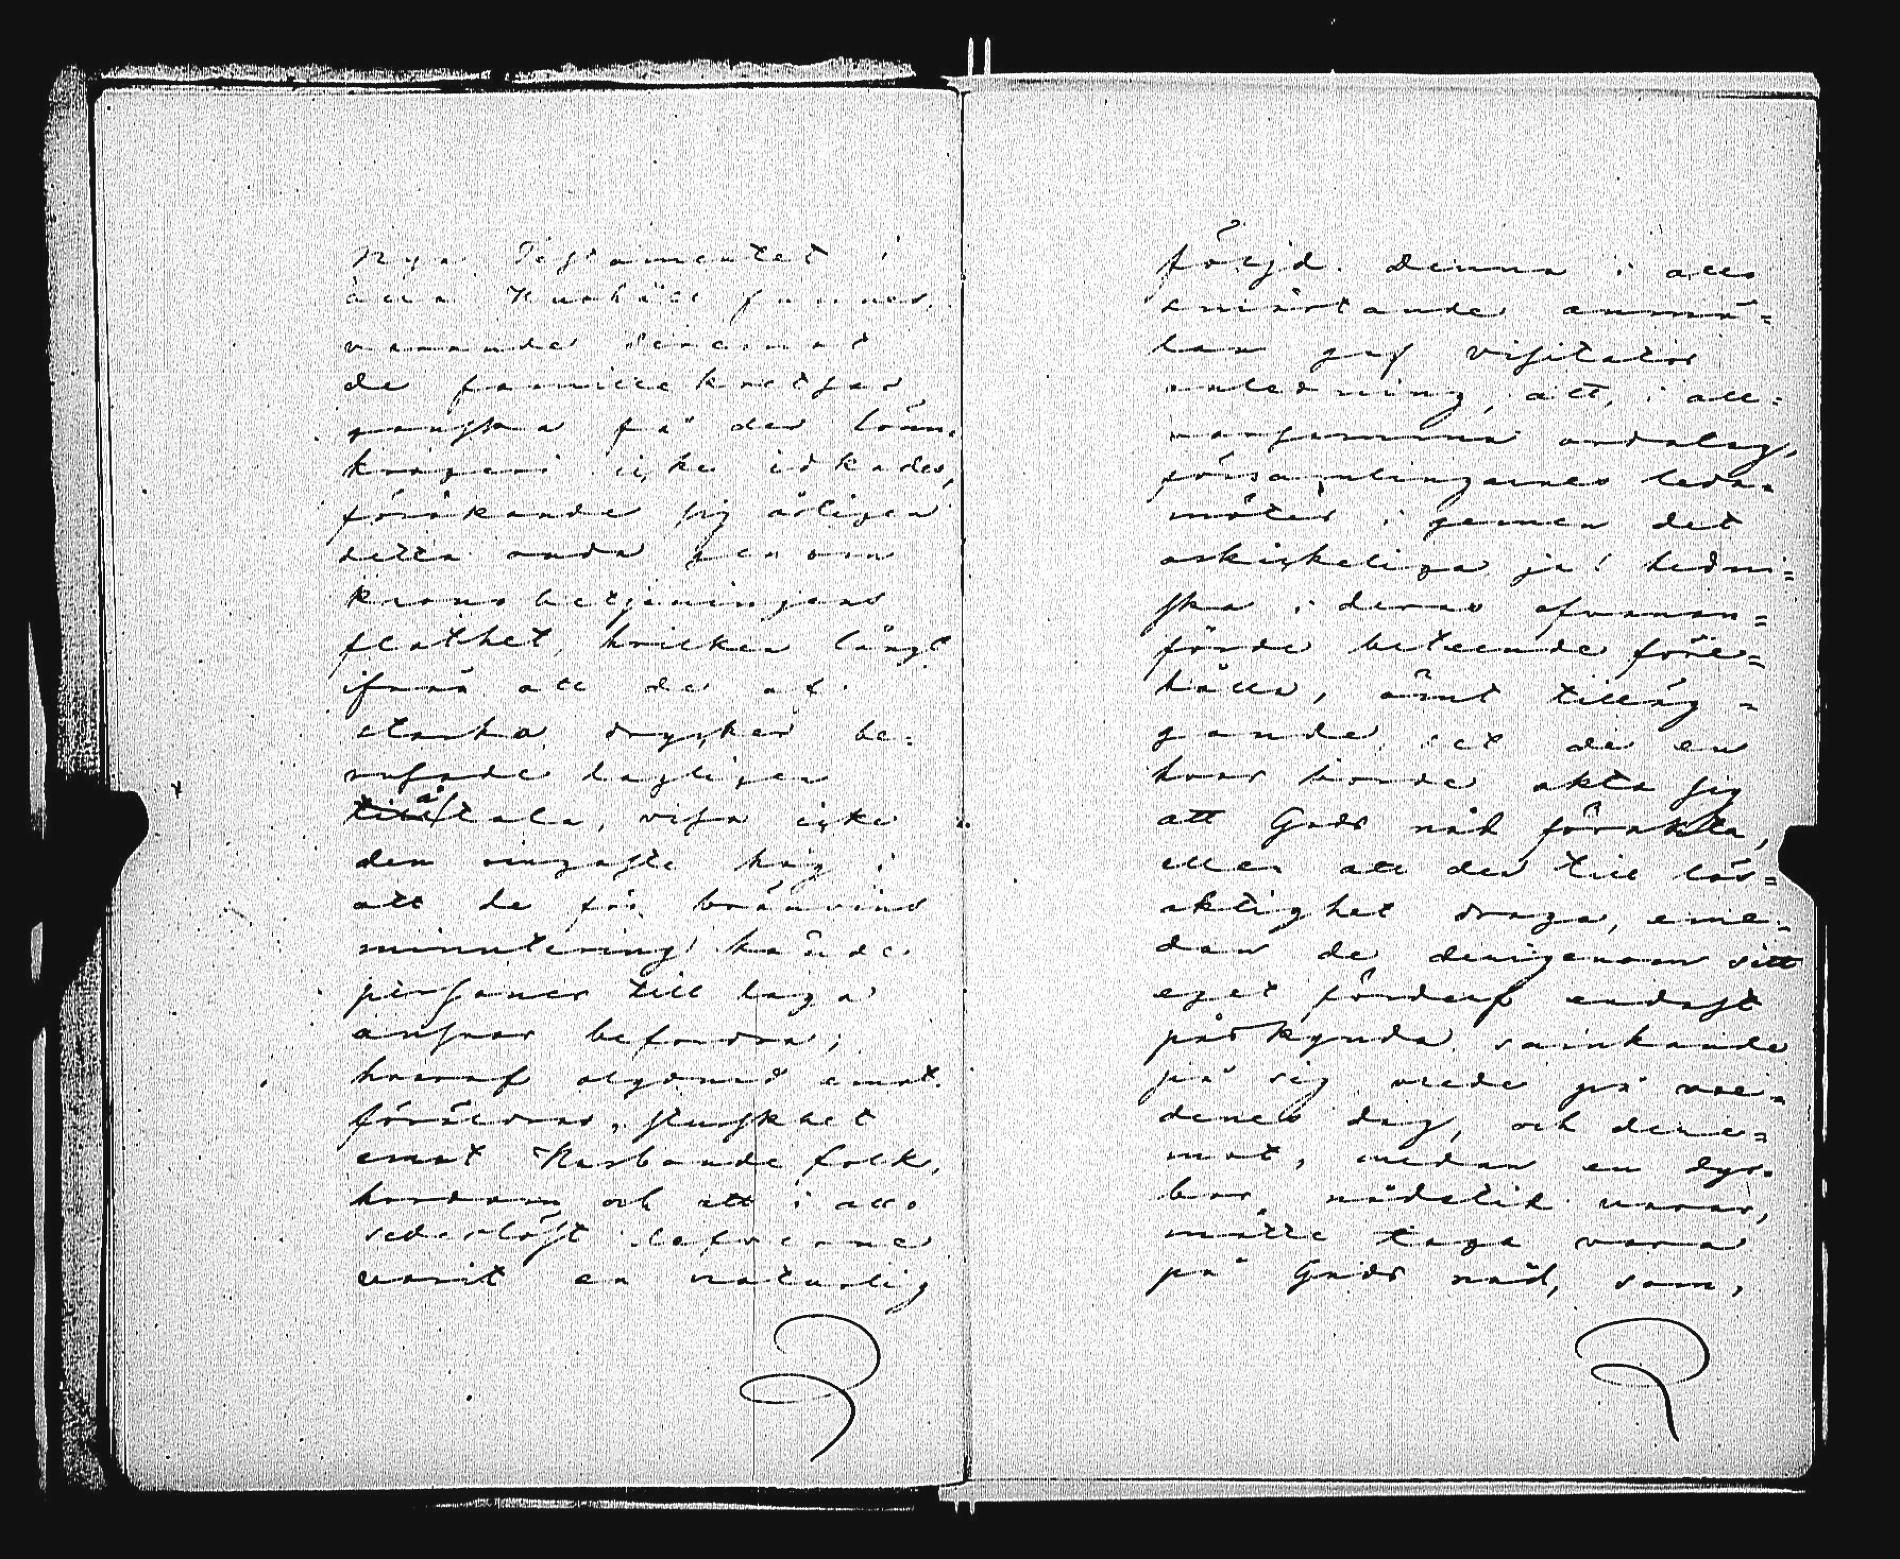 Nya Testamentet i
alla Hushåll funnes.
varande
de familiekretsar
ganska få der lönn-
krögeri icke idkades,
förökande sig årligen
detta onda genom
Kronobetjeningens
flathet, hvilken långt
ifrån att de af
starka drycker be-
rusade lagligen
åtala, visa icke
den ringaste håg i
att de för bränvins
minutering kände
personer till laga
ansvar befordra,
hvaraf olydnad emot
föräldrar, stuskhet
emot Husbonde folk,
hordom och ett i allo
sederlöst lefverne
vorit en naturlig
följd. Denna i allo
smärtande anmä-
lan gaf visitator
anledning, att, i all-
varsamma ordalag,
församlingarnes leda-
möter i gemen det
oskickeliga ja! hedni-
ska i deras ofvanan-
förde beteende före-
hålla, ömt tilläg-
gande att de en
hvar borde akta sig
att Guds nåd förakta,
eller att den till lös-
aktighet draga, eme-
dan de derigenom sitt
eget förderf endast
påskynda samkande
på sig vrede på vre-
denes dag, och dere-
mot, medan en dyr-
bar nådetid varar,
måtte taga vara
på Guds nåd, som,